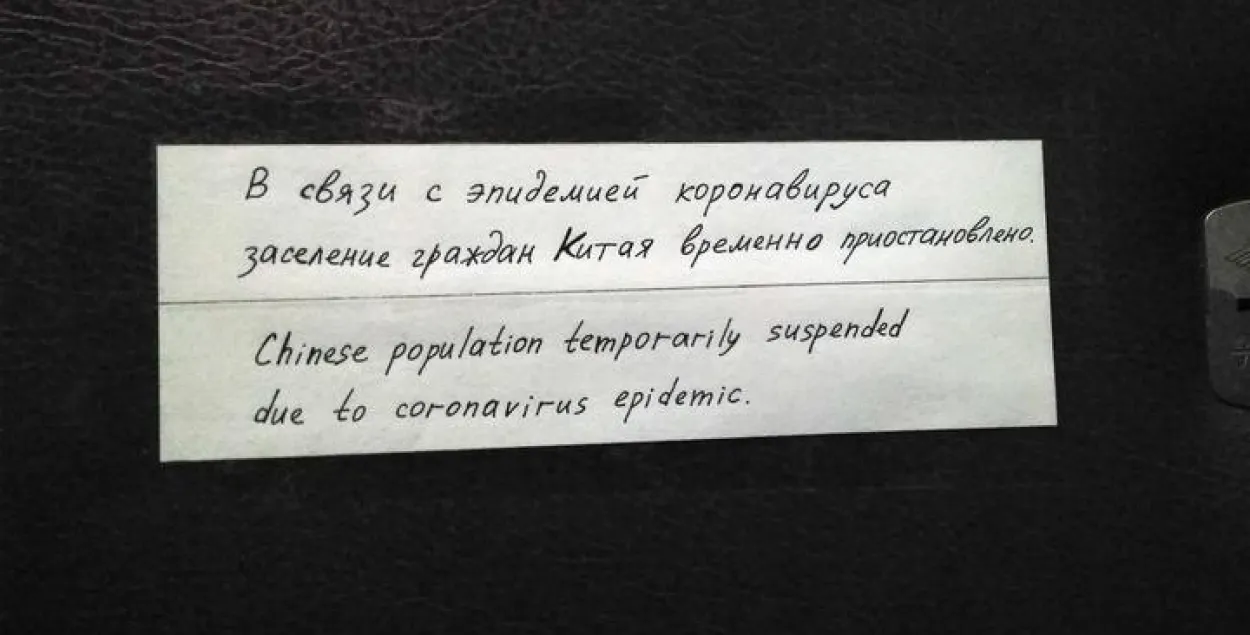 В связи с эпидемией коронавируса
заселение граждан Китая временно приостановлено.
Chinese population temporarily suspended
due to coronavirus epidemic.